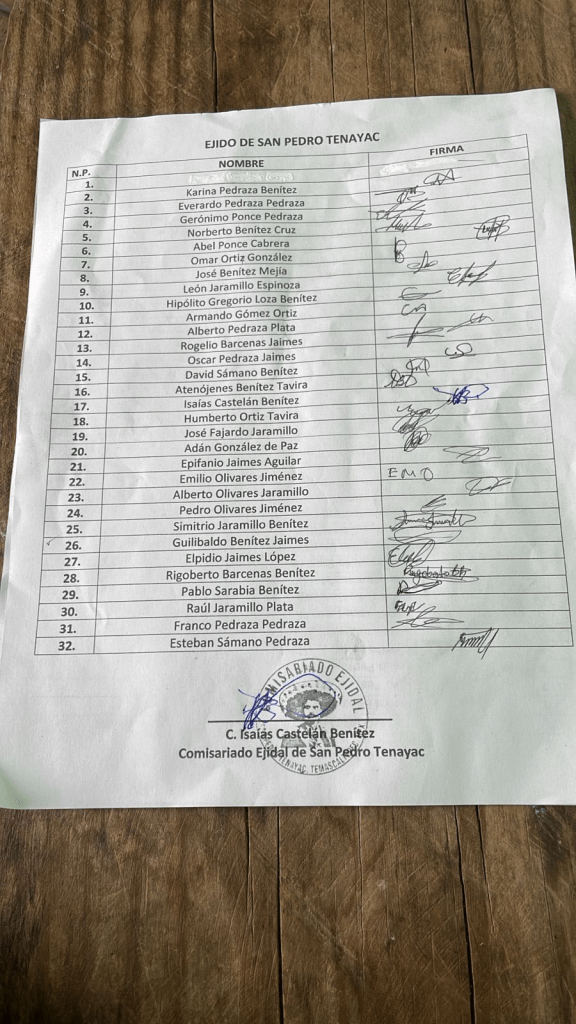 EJIDO DE SAN PEDRO TENAYAC
N.P. NOMBRE FIRMA
1.
2. Karina Pedraza Benítez
3. Everardo Pedraza Pedraza
4. Gerónimo Ponce Pedraza
5. Norberto Benítez Cruz
6. Abel Ponce Cabrera
7. Omar Ortiz González
8. José Benítez Mejía
9. León Jaramillo Espinoza
10. Hipólito Gregorio Loza Benítez
11. Armando Gómez Ortiz
12. Alberto Pedraza Plata
13. Rogelio Barcenas Jaimes
14. Oscar Pedraza Jaimes
15. David Sámano Benítez
16. Atenójenes Benítez Tavira
17. Isaías Castelán Benítez
18. Humberto Ortiz Tavira
19. José Fajardo Jaramillo
20. Adán González de Paz
21. Epifanio Jaimes Aguilar
22. Emilio Olivares Jiménez EMO
23. Alberto Olivares Jaramillo
24. Pedro Olivares Jiménez
25. Simitrio Jaramillo Benítez
26. Guilibaldo Benítez Jaimes
27. Elpidio Jaimes López
28. Rigoberto Barcenas Benítez
29. Pablo Sarabia Benítez
30. Raúl Jaramillo Plata
31. Franco Pedraza Pedraza
32. Esteban Sámano Pedraza
EJIDAL
C. Isaías Castelán Benítez
Comisariado Ejidal de San Pedro Tenayac
TENAYAC,